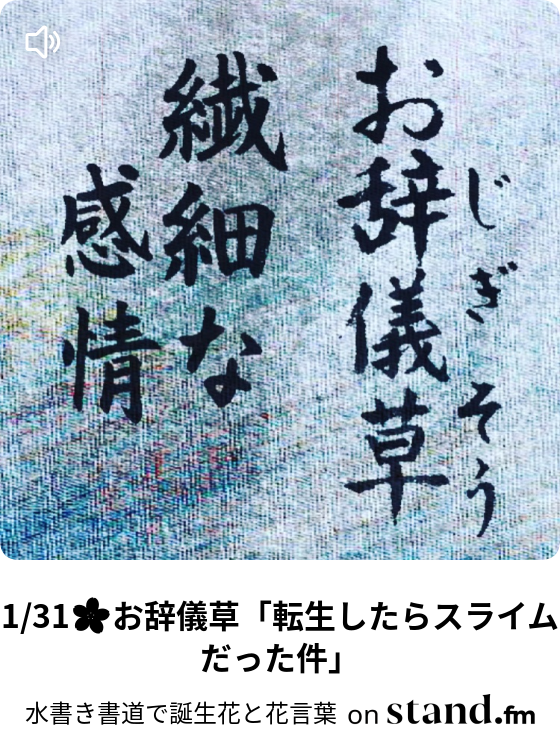 お辞儀草
じぎそう
繊細な
感情
1/31🌸お辞儀草「転生したらスライム
だった件」
水書き書道で誕生花と花言葉 on stand.fm